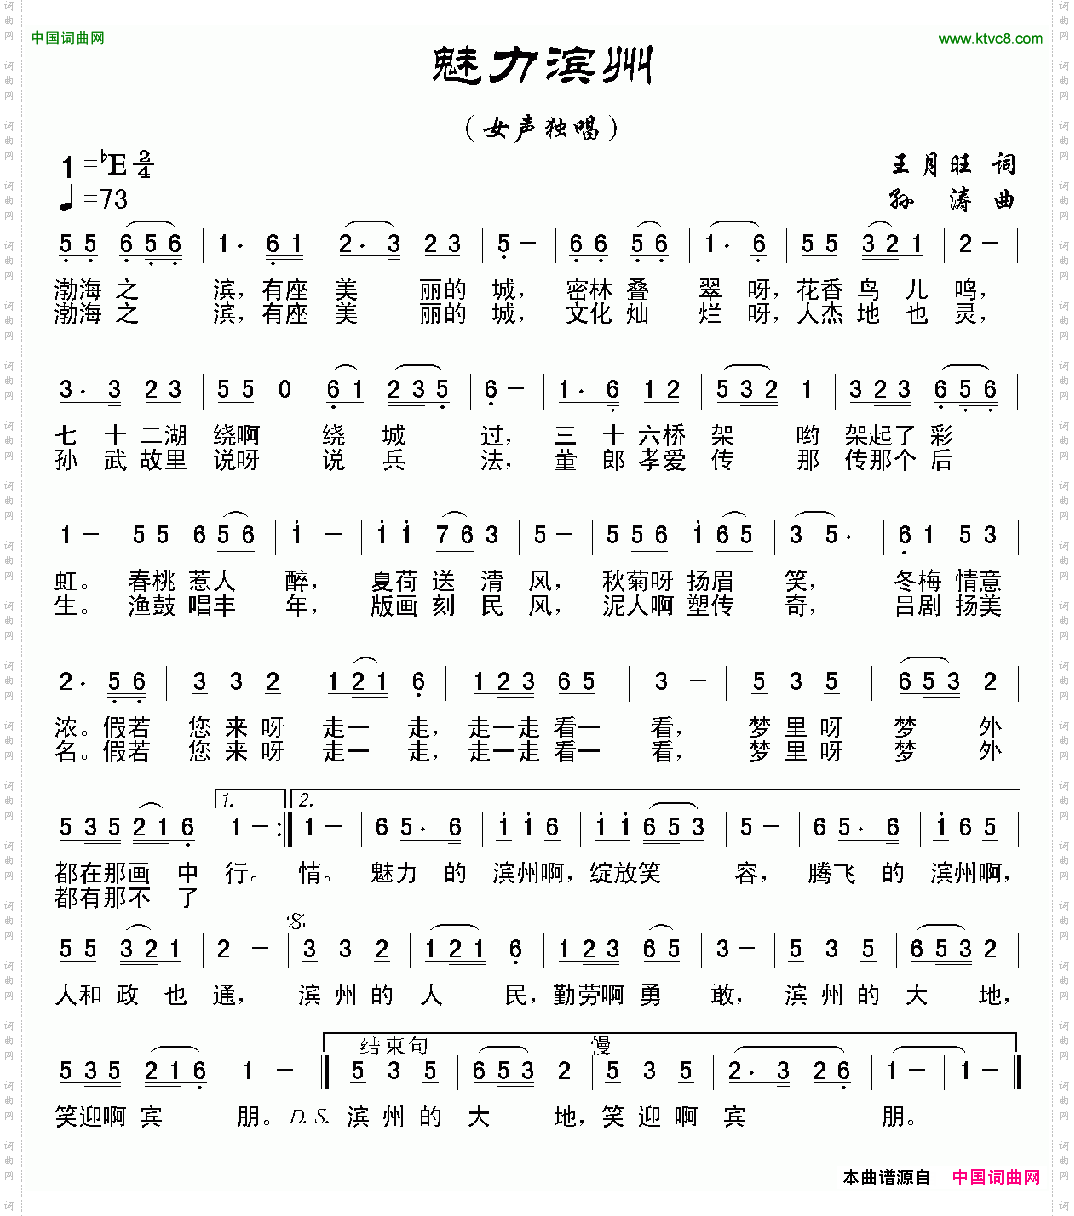 中国词曲网 www.ktvc8.com
魅力滨州
（女声独唱）
1=♭E 2/4 王月旺 词
♩=73 孙 涛 曲
5 5 6 5 6 | 1· 6 1 2· 3 2 3 | 5 － | 6 6 5 6 | 1· 6 | 5 5 3 2 1 | 2 － |
渤海之 滨，有座美 丽的城，密林叠 翠呀，花香鸟儿鸣，
渤海之 滨，有座美 丽的城，文化灿 烂呀，人杰地也灵，
3· 3 2 3 | 5 5 0 6 1 2 3 5 | 6 － | 1· 6 1 2 | 5 3 2 1 | 3 2 3 6 5 6 |
七十二湖绕啊 绕城 过，三十六桥架 哟 架起了彩
孙武故里说呀 说兵 法，董郎孝爱传 那 传那个后
1 － 5 5 6 5 6 | i － | i i 7 6 3 | 5 － | 5 5 6 i 6 5 | 3 5· | 6 1 5 3 |
虹。春桃惹人 醉，夏荷送清风，秋菊呀扬眉 笑，冬梅情意
生。渔鼓唱丰 年，版画刻民风，泥人啊塑传 奇，吕剧扬美
2· 5 6 | 3 3 2 | 1 2 1 6 | 1 2 3 6 5 | 3 － | 5 3 5 | 6 5 3 2 |
浓。假若 您来呀 走一 走，走一走看一 看，梦里呀 梦 外
名。假若 您来呀 走一 走，走一走看一 看，梦里呀 梦 外
1. 2.
5 3 5 2 1 6 1 － :‖ 1 － | 6 5· 6 | i i 6 | i i 6 5 3 | 5 － | 6 5· 6 | i 6 5 |
都在那画 中 行。 情。 魅力 的 滨州啊，绽放笑 容， 腾飞的 滨州啊，
都有那不 了
𝄋
5 5 3 2 1 | 2 － | 3 3 2 | 1 2 1 6 | 1 2 3 6 5 | 3 － | 5 3 5 | 6 5 3 2 |
人和政也 通， 滨州的 人 民，勤劳啊勇 敢， 滨州的 大 地，
结束句 慢
5 3 5 2 1 6 1 － ‖ 5 3 5 | 6 5 3 2 | 5 3 5 | 2· 3 2 6 | 1 － | 1 － ‖
笑迎啊宾 朋。D.S. 滨州的 大 地，笑迎啊 宾 朋。
本曲谱源自 中国词曲网